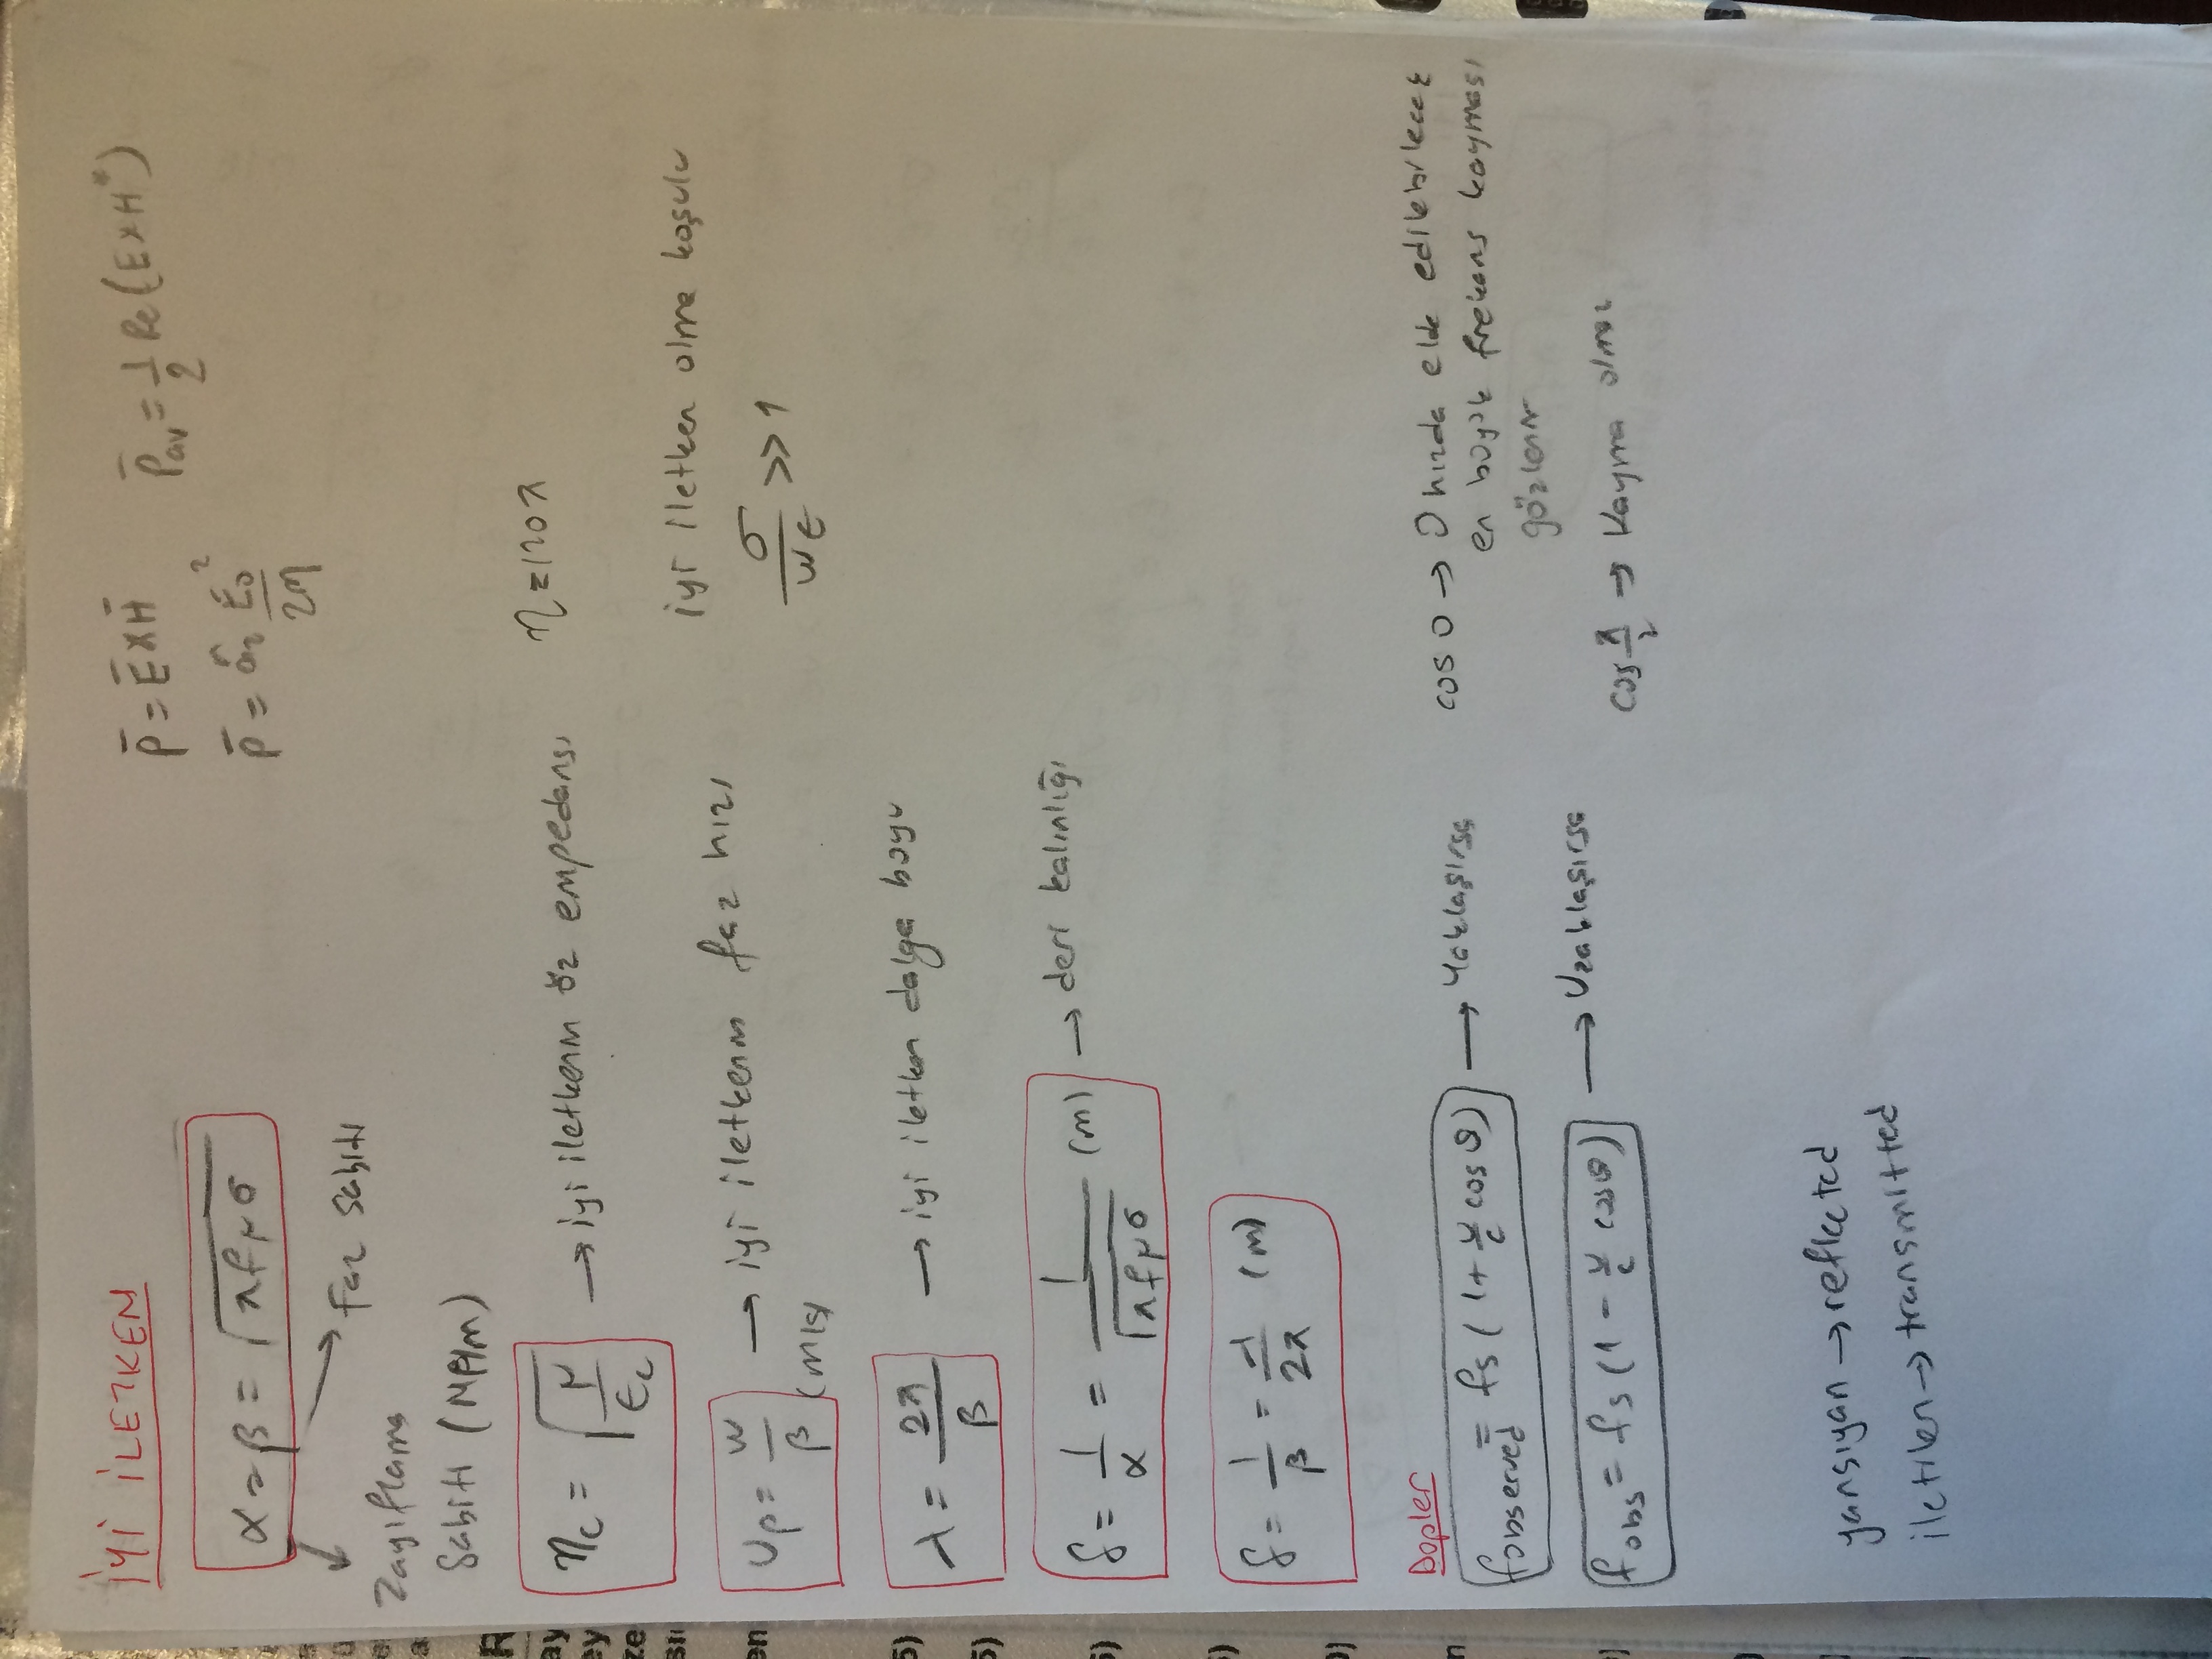 İYİ İLETKEN
α = β = √πfμσ
Faz sabiti
Zayıflama
Sabiti (Np/m)
P̄ = Ē x H̄
P̄av = 1/2 Re(E x H*)
P̄ = âz E0²/2η
ηc = √μ/εc → iyi iletkenin öz empedansı
η = 120π
Up = w/β (m/s) → iyi iletkenin faz hızı
iyi iletken olma koşulu
σ/wε >> 1
λ = 2π/β → iyi iletken dalga boyu
δ = 1/α = 1/√πfμσ (m) → deri kalınlığı
δ = 1/β = λ/2π (m)
Dopler
fobserved = fs (1 + v/c cos θ) → Yaklaşırsa
fobs = fs (1 - v/c cos θ) → Uzaklaşırsa
cos 0 → O hızda elde edilebilecek
en büyük frekans kayması
gözlenir
cos π/2 → Kayma olmaz
yansıyan → reflected
iletilen → transmitted